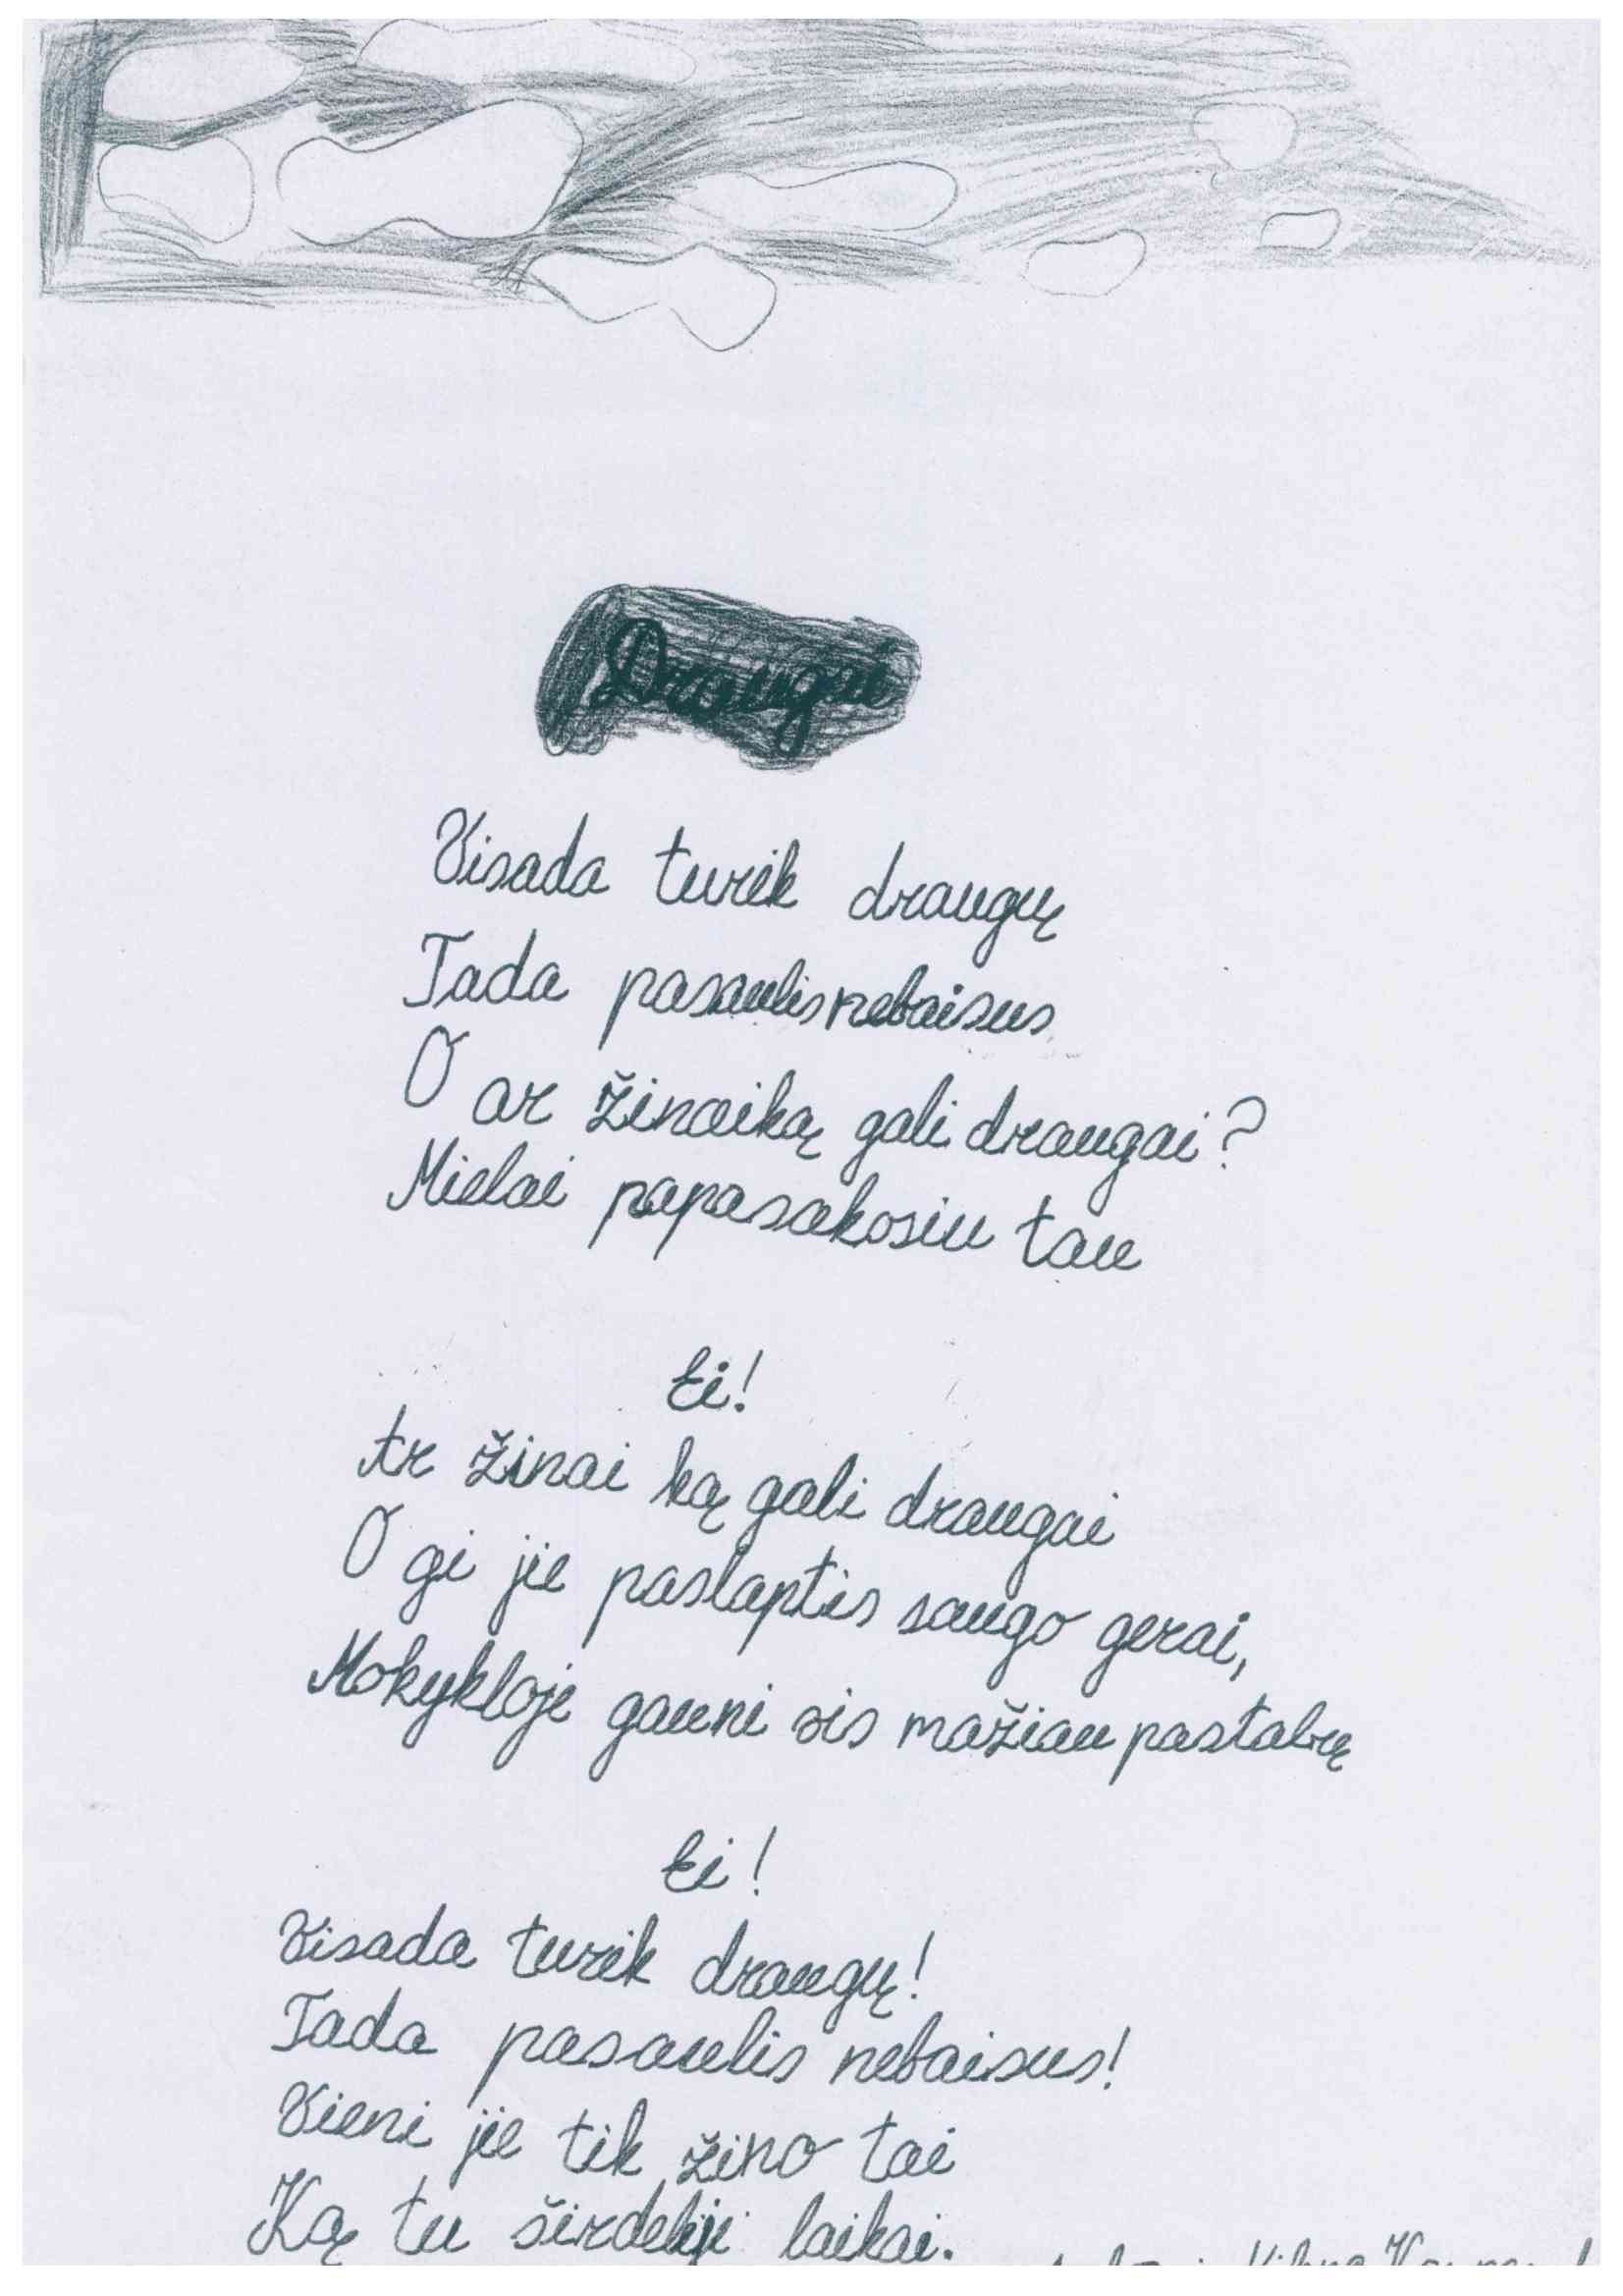 Draugai
Visada turėk draugų
Tada pasaulis nebaisus
O ar žinai ką gali draugai?
Mielai papasakosiu tau
Ei!
Ar žinai ką gali draugai
O gi jie paslaptis saugo gerai,
Mokykloje gauni vis mažiau pastabų
Ei!
Visada turėk draugų!
Tada pasaulis nebaisus!
Vieni jie tik žino tai
Ką tu širdelėje laikai.